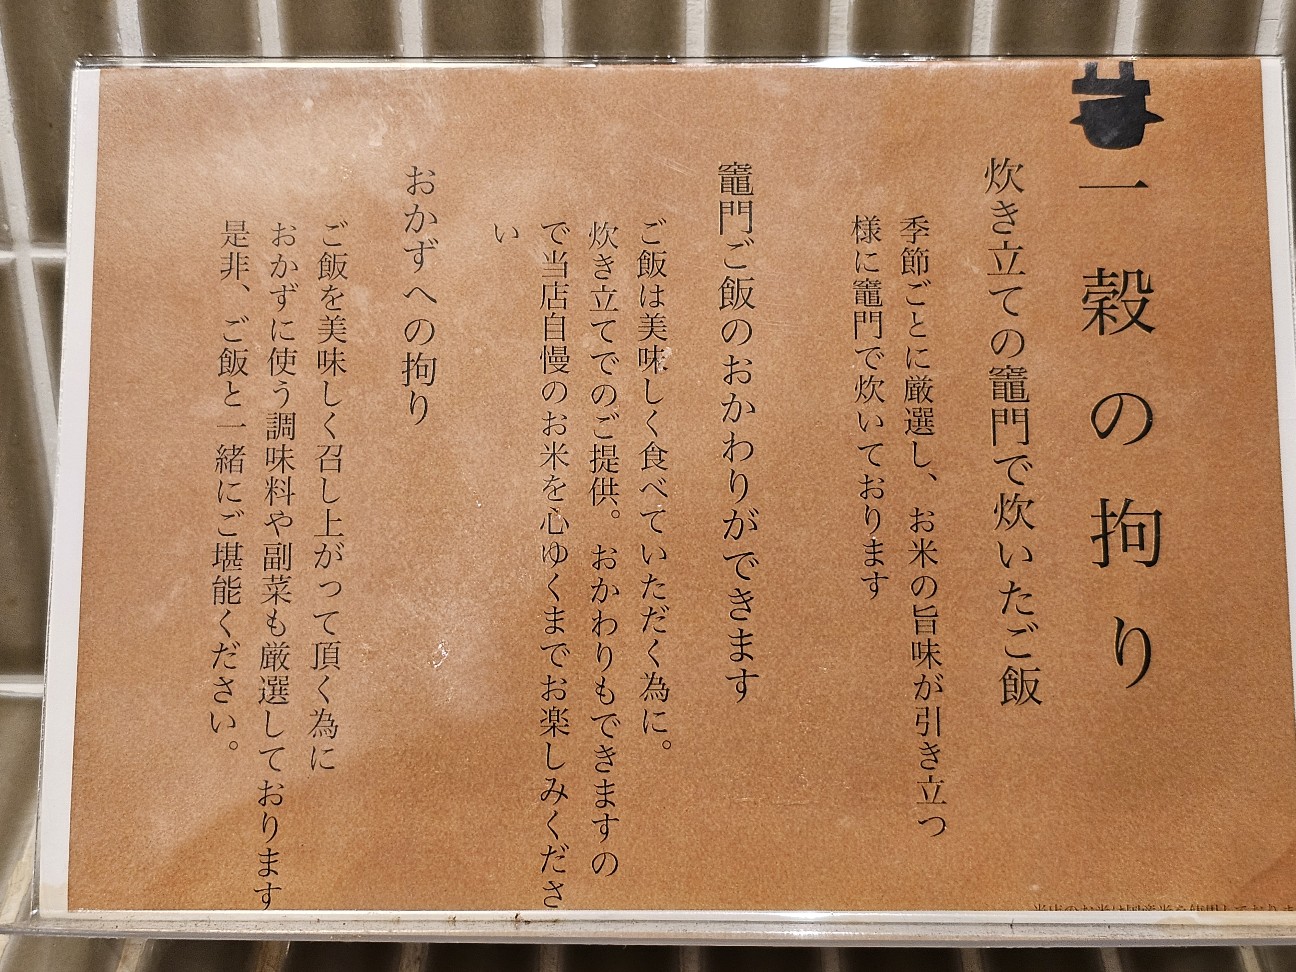 一穀の拘り
炊き立ての竈門で炊いたご飯
季節ごとに厳選し、お米の旨味が引き立つ
様に竈門で炊いております
竈門ご飯のおかわりができます
ご飯は美味しく食べていただく為に。
炊き立てでのご提供。おかわりもできますの
で当店自慢のお米を心ゆくまでお楽しみくださ
い
おかずへの拘り
ご飯を美味しく召し上がって頂く為に
おかずに使う調味料や副菜も厳選しております
是非、ご飯と一緒にご堪能ください。